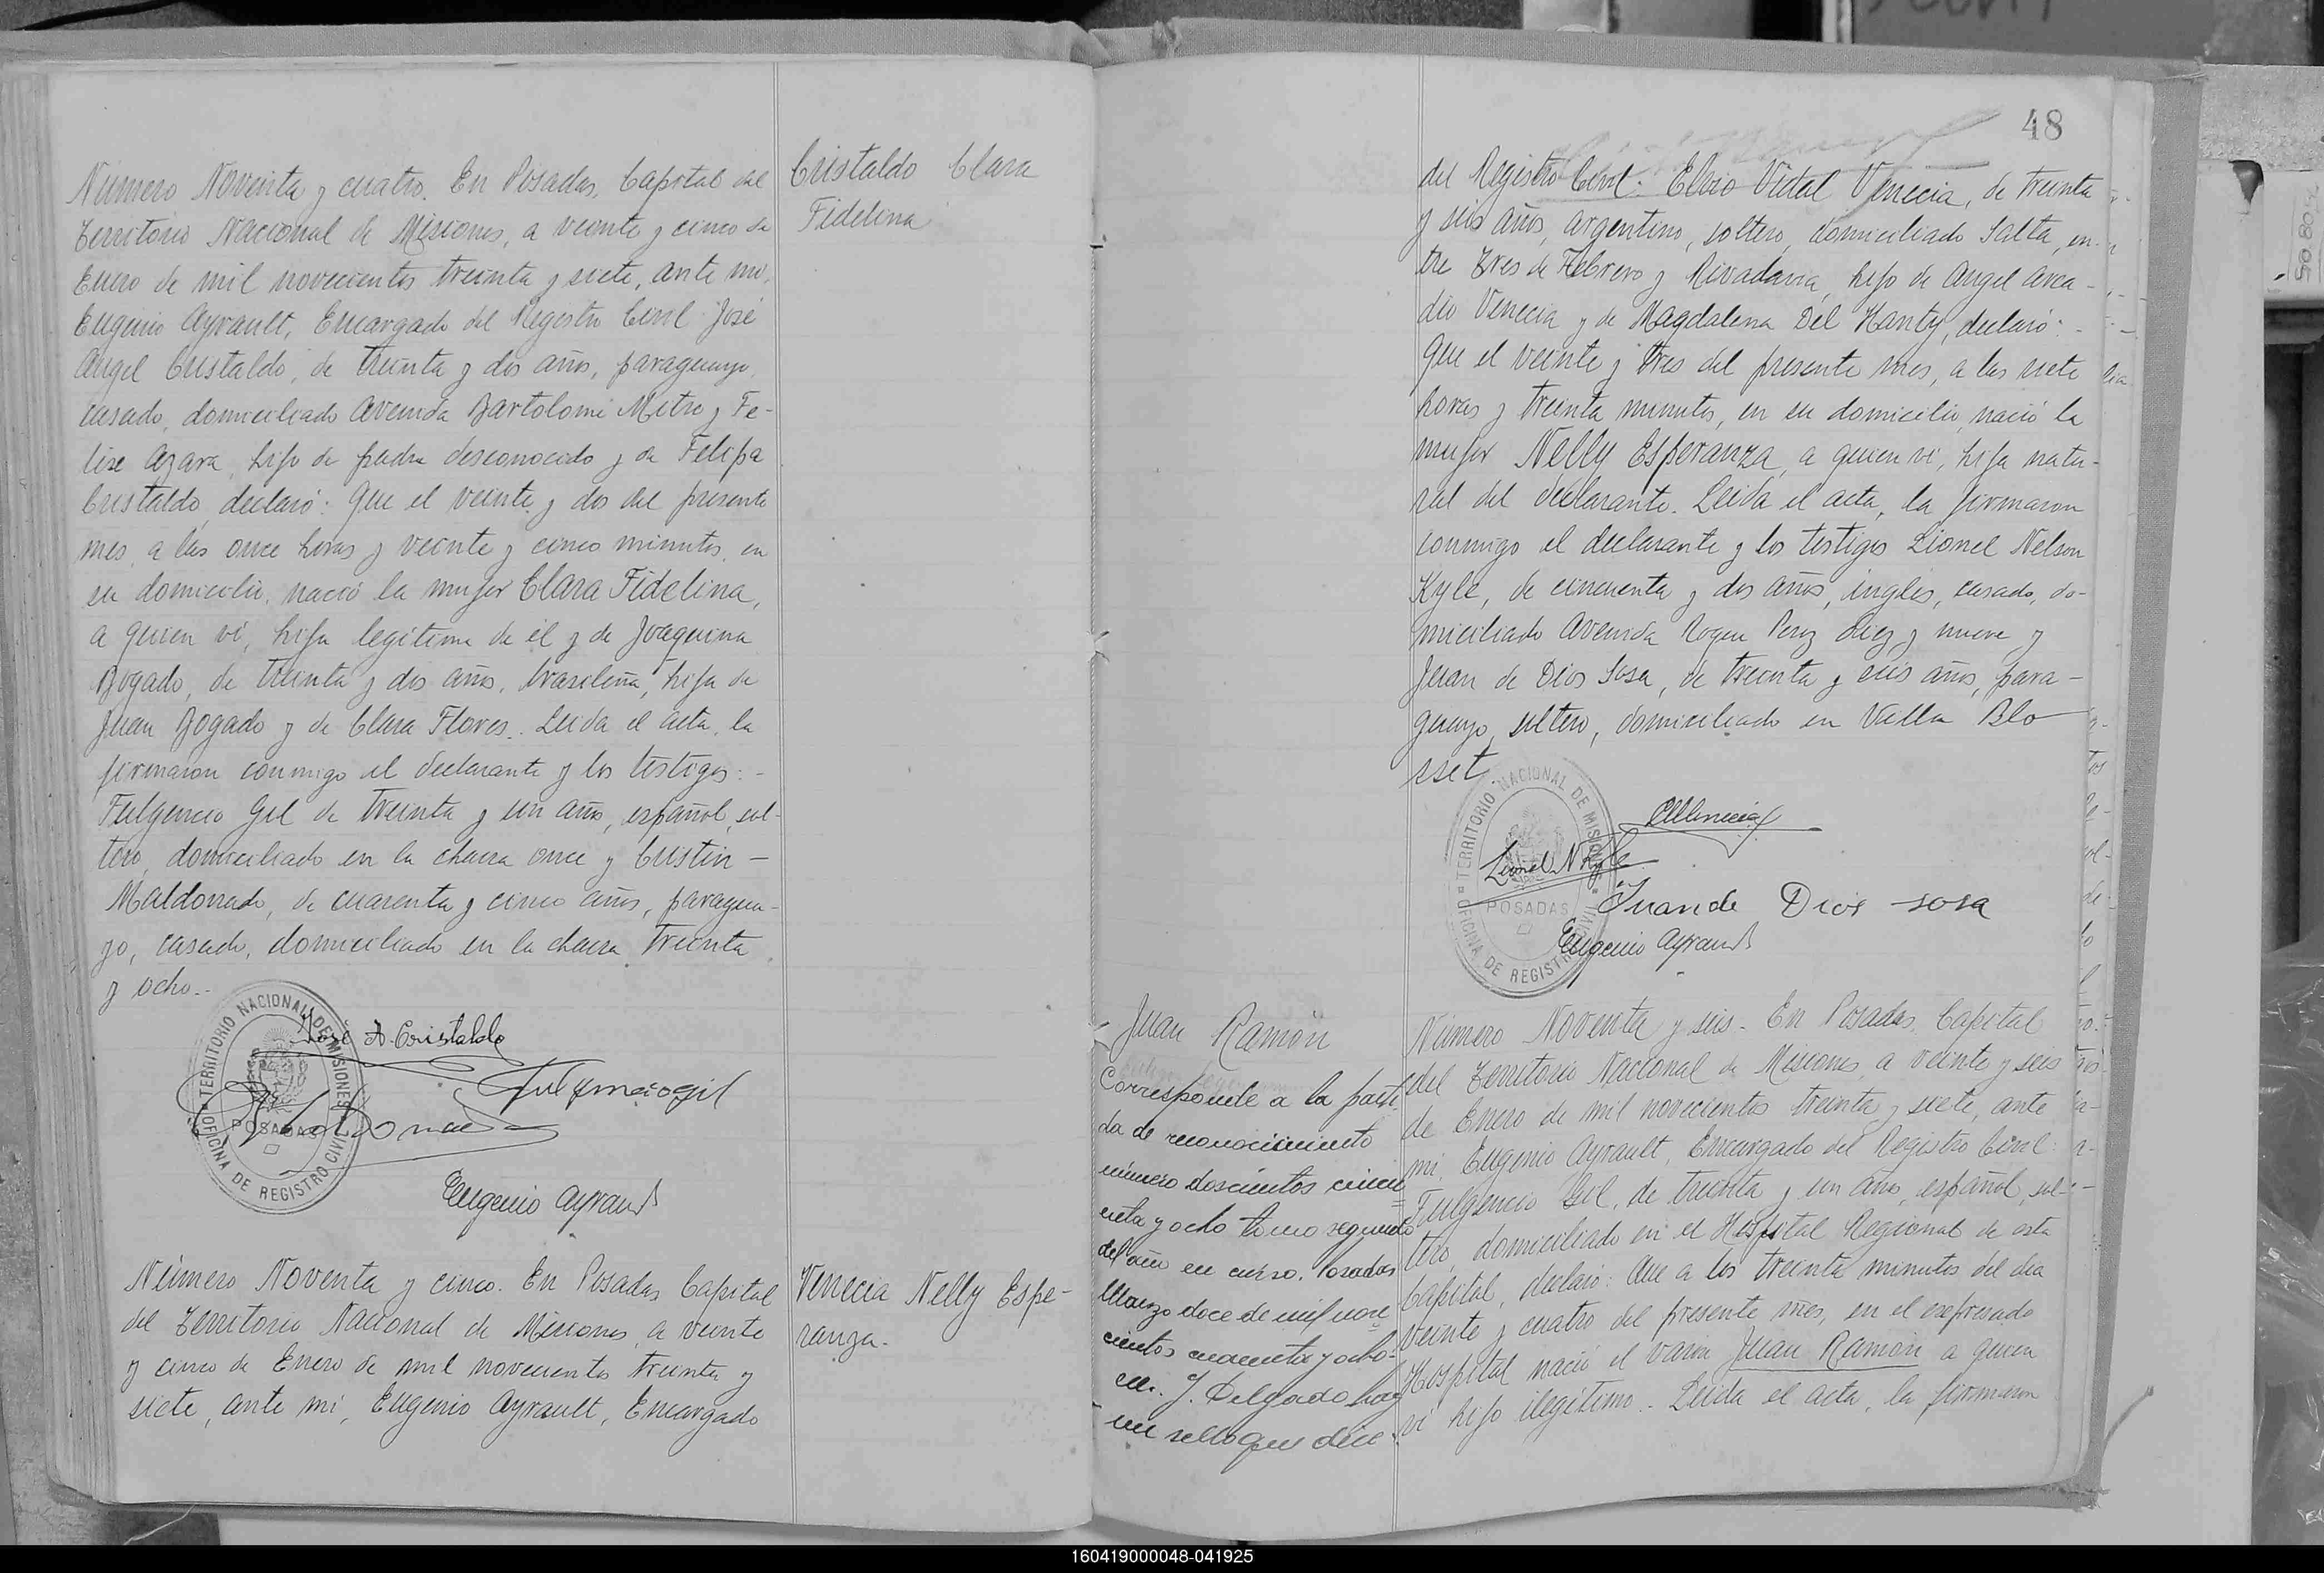 Número Noventa y cuatro. En Posadas, Capital del
Territorio Nacional de Misiones, a veinte y cinco de
Enero de mil novecientos treinta y siete, ante mi,
Eugenio Ayrault, Encargado del Registro Civil José
Angel Cristaldo, de treinta y dos años, paraguayo,
casado, domiciliado Avenida Bartolomé Mitre y Fe-
lix Azara, hijo de padre desconocido y de Felipa
Cristaldo, declaró: Que el veinte y dos del presente
mes, a las once horas y veinte y cinco minutos, en
su domicilio, nació la mujer Clara Fidelina,
a quien vi, hija legítima de él y de Joaquina
Bogado, de treinta y dos años, brasileña, hija de
Juan Bogado y de Clara Flores. Leida el acta, la
firmaron conmigo el declarante y los testigos: -
Fulgencio Gil de treinta y un año, español, sol-
tero, domiciliado en la chacra once y Cristin -
Maldonado, de cuarenta y cinco años, paragua-
yo, casado, domiciliado en la chacra treinta
y ocho.-
Cristaldo Clara
Fidelina
TERRITORIO NACIONAL DE MISIONES
POSADAS
OFICINA DE REGISTRO CIVIL
José A. Cristaldo
Fulgencio gil
Maldonado
Eugenio Ayrault
Número Noventa y cinco. En Posadas, Capital
del Territorio Nacional de Misiones, a veinte
y cinco de Enero de mil novecientos treinta y
siete, ante mi, Eugenio Ayrault, Encargado
Venecia Nelly Espe-
ranza.-
48
del Registro Civil: Elvio Vidal Venecia, de treinta
y seis años, argentino, soltero, domiciliado Salta, en-
tre Tres de Febrero y Rivadavia, hijo de Angel Arca-
dio Venecia y de Magdalena Del Hanty, declaró: -
Que el veinte y tres del presente mes, a las siete
horas y treinta minutos, en su domicilio, nació la
mujer Nelly Esperanza, a quien vi, hija natu-
ral del declarante. Leida el acta, la firmaron
conmigo el declarante y los testigos Lionel Nelson
Kyle, de cincuenta y dos años, inglés, casado, do-
miciliado Avenida Roque Perez diez y nueve y
Juan de Dios Sosa, de treinta y seis años, para-
guayo, soltero, domiciliado en Villa Blo-
sset.
TERRITORIO NACIONAL DE MISIONES
POSADAS
OFICINA DE REGISTRO CIVIL
Venecia
Lionel N Kyle
Juan de Dios sosa
Eugenio Ayrault
Juan Ramón
Corresponde a la parti
da de reconocimiento
número doscientos cincu
enta y ocho tomo segundo
del año en curso. Posadas
Marzo doce de mil nove
cientos cuarenta y ocho-
M. J. Delgado hay
un sello que dice:
Número Noventa y seis.- En Posadas, Capital
del Territorio Nacional de Misiones, a veinte y seis
de Enero de mil novecientos treinta y siete, ante
mi, Eugenio Ayrault, Encargado del Registro Civil:
Fulgencio Gil, de treinta y un año, español, sol-
tero, domiciliado en el Hospital Regional de esta
Capital, declaró: Que a los treinta minutos del dia
veinte y cuatro del presente mes, en el expresado
Hospital nació el varón Juan Ramón a quien
vi hijo ilegítimo.- Leida el acta, la firmaron
160419000048-041925